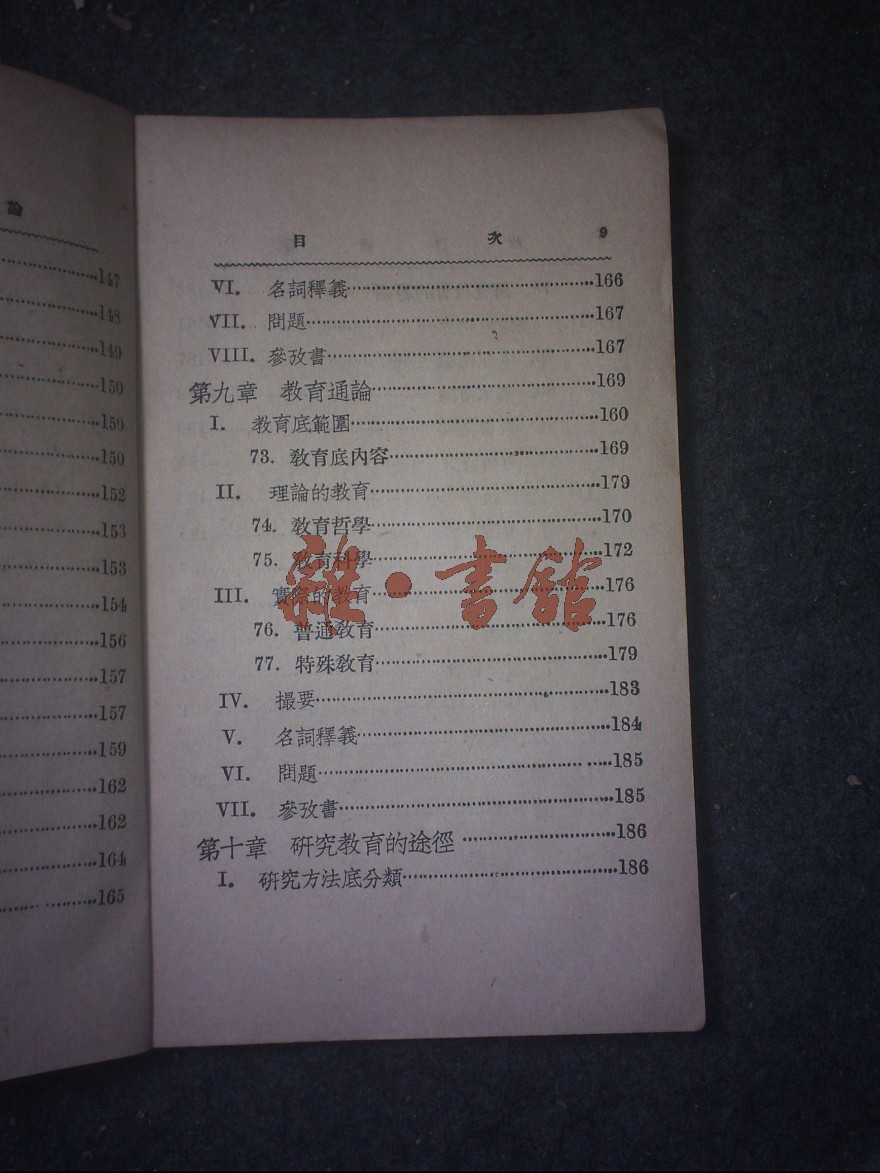 論
147
148
149
150
150
150
152
153
153
154
156
157
157
159
162
162
164
165
目 次 9
VI. 名詞釋義……166
VII. 問題……167
VIII. 參攷書……167
第九章 教育通論……169
I. 教育底範圍……160
73. 教育底內容……169
II. 理論的教育……179
74. 教育哲學……170
75. 教育科學……172
III. 實際的教育……176
76. 普通教育……176
77. 特殊教育……179
IV. 撮要……183
V. 名詞釋義……184
VI. 問題……185
VII. 參攷書……185
第十章 研究教育的途徑……186
I. 研究方法底分類……186
雜·書館